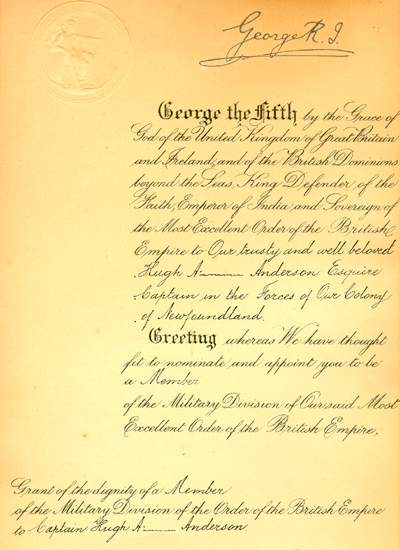 George R. I.
George the Fifth by the Grace of
God of the United Kingdom of Great Britain
and Ireland, and of the British Dominions
beyond the Seas, King Defender of the
Faith, Emperor of India and Sovereign of
the Most Excellent Order of the British
Empire to Our trusty and well beloved
Hugh A. Anderson Esquire
Captain in the Forces of Our Colony
of Newfoundland,
Greeting whereas We have thought
fit to nominate and appoint you to be
a Member
of the Military Division of Our said Most
Excellent Order of the British Empire,
Grant of the dignity of a Member
of the Military Division of the Order of the British Empire
to Captain Hugh A. Anderson